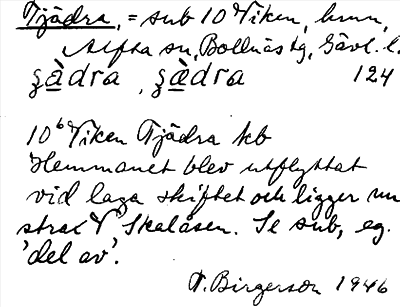 Tjädra, = sub 10 Viken, hmn,
Alfta sn, Bollnäs tg, Gävl. l.
ʂädra, ʂædra 124
10⁶ Viken Tjädra kb
Hemmanet blev utflyttat
vid laga skiftet och ligger nu
strax V Skalåsen. Se sub, eg.
'del av'.
F. Birgerson 1946